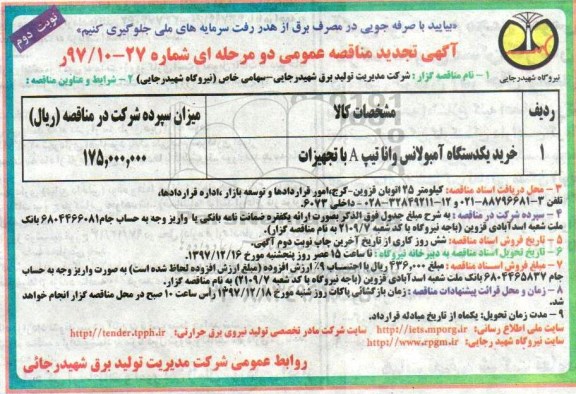 نوبت دوم
«بیایید با صرفه جویی در مصرف برق از هدر رفت سرمایه های ملی جلوگیری کنیم»
آگهی تجدید مناقصه عمومی دو مرحله ای شماره ۲۷-۹۷/۱۰ر
نیروگاه شهیدرجایی
۱- نام مناقصه گزار: شرکت مدیریت تولید برق شهیدرجایی-سهامی خاص (نیروگاه شهیدرجایی) ۲- شرایط و عناوین مناقصه:
ردیف مشخصات کالا میزان سپرده شرکت در مناقصه (ریال)
۱ خرید یکدستگاه آمبولانس وانا تیپ A با تجهیزات ۱۷۵,۰۰۰,۰۰۰
۳- محل دریافت اسناد مناقصه: کیلومتر ۲۵ اتوبان قزوین-کرج،امور قراردادها و توسعه بازار ،اداره قراردادها،
تلفن ۳-۸۸۷۹۶۶۸۱-۰۲۱ و ۱۲-۳۲۸۴۹۲۱۱-۰۲۸ داخلی ۶۰۷۳.
۴- سپرده شرکت در مناقصه : به شرح مبلغ جدول فوق الذکر بصورت ارائه یکفقره ضمانت نامه بانکی یا واریز وجه به حساب جام ۶۸۰۴۴۶۶۰۸۱ بانک
ملت شعبه اسدآبادی قزوین (باجه نیروگاه با کد شعبه ۲۱۰۹/۷) به نام مناقصه گزار.
۵- تاریخ فروش اسناد مناقصه: شش روز کاری از تاریخ آخرین چاپ نوبت دوم آگهی.
۶- تاریخ تحویل اسناد مناقصه به دبیرخانه نیروگاه : تا ساعت ۱۵ عصر روز پنجشنبه مورخ ۱۳۹۷/۱۲/۱۶.
۷- مبلغ فروش اسناد مناقصه : مبلغ ۴۳۶,۰۰۰ ریال با احتساب ۹٪ ارزش افزوده (مبلغ ارزش افزوده لحاظ شده است) به صورت واریز وجه به حساب
جام ۶۸۰۴۴۶۵۸۳۷ بانک ملت شعبه اسدآبادی قزوین (باجه نیروگاه با کد شعبه ۲۱۰۹/۷) به نام مناقصه گزار.
۸- زمان و محل قرائت پیشنهادات مناقصه : زمان بازگشائی پاکات روز شنبه مورخ ۱۳۹۷/۱۲/۱۸ رأس ساعت ۱۰ صبح در محل مناقصه گزار انجام خواهد
شد.
۹- مدت زمان تحویل: یکماه از تاریخ مبادله قرارداد.
سایت ملی اطلاع رسانی: http//iets.mporg.ir سایت شرکت مادر تخصصی تولید نیروی برق حرارتی: http//tender.tpph.ir
سایت نیروگاه شهید رجایی: http//www.rpgm.ir
روابط عمومی شرکت مدیریت تولید برق شهیدرجائی